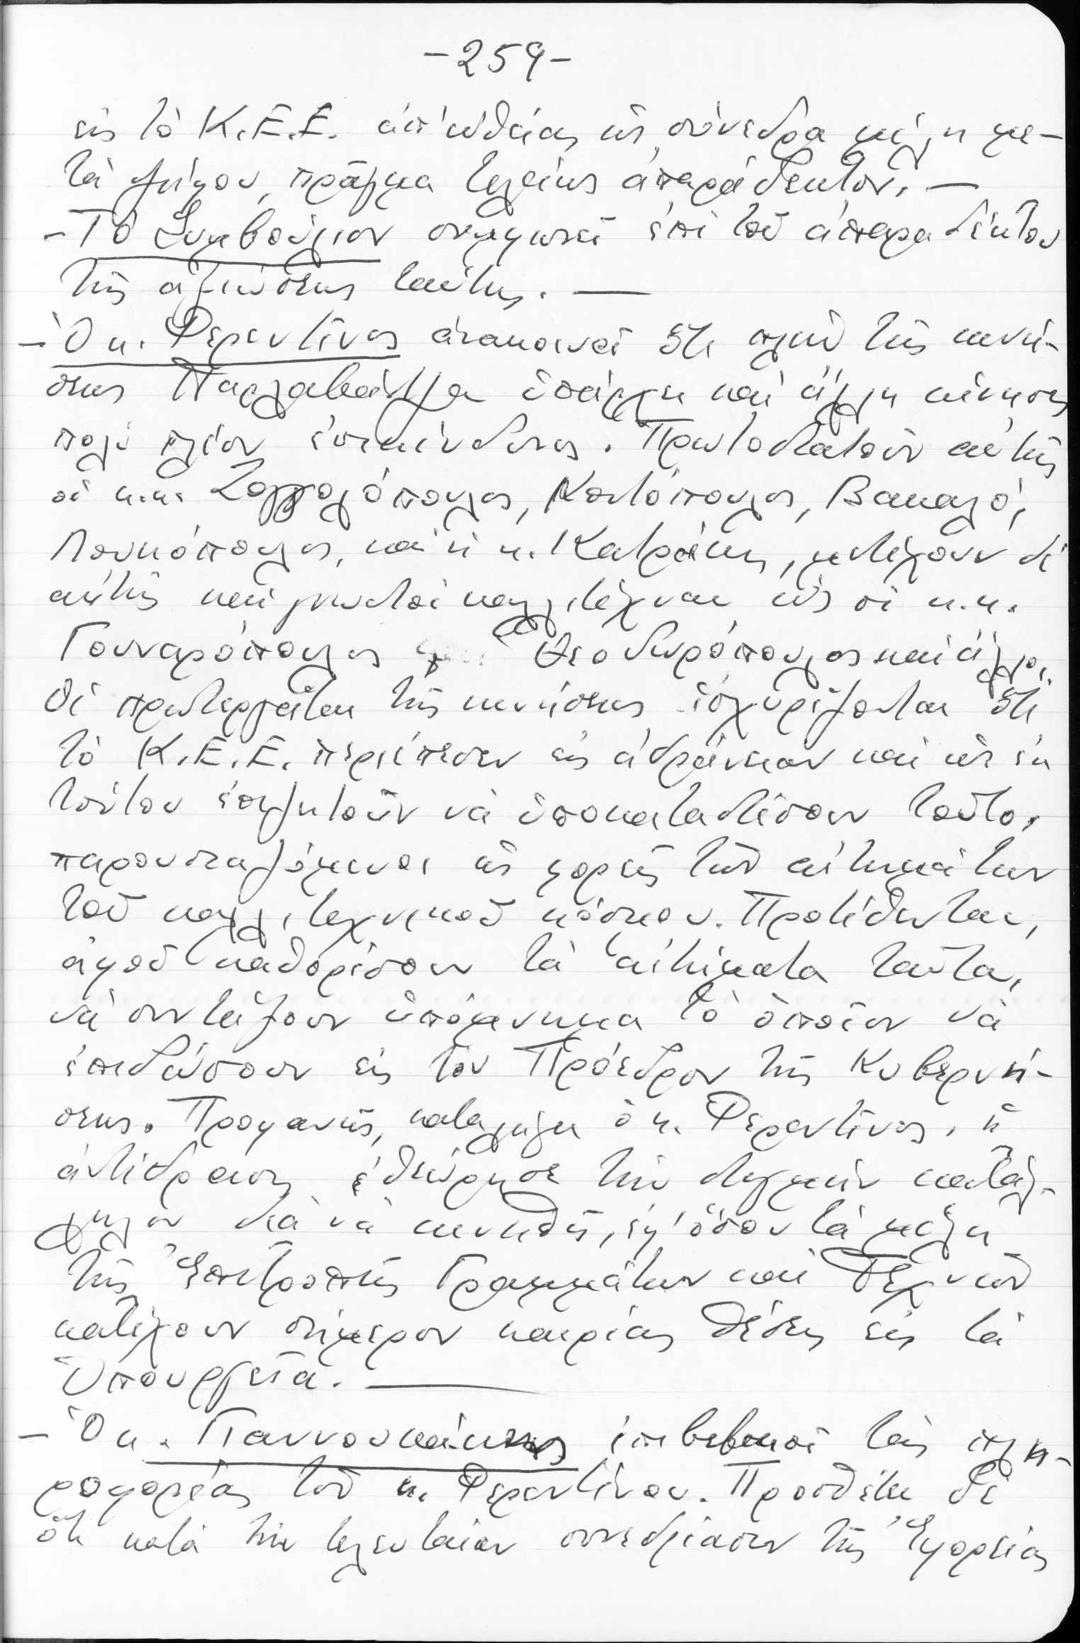 -259-
εἰς τὸ Κ.Ε.Ε. ἀπ' εὐθείας ὡς σύνεδρα μέλη με-
τὰ ψήφου, πρᾶγμα τελείως ἀπαράδεκτον. —
- Τὸ Συμβούλιον συμφωνεῖ ἐπὶ τοῦ ἀπαραδέκτου
τῆς ἀξιώσεως ταύτης. —
- Ὁ κ. Φερεντῖνος ἀνακοινοῖ ὅτι πλὴν τῆς κινή-
σεως Παρλαβάντζα ὑπάρχει καὶ ἄλλη κίνησις
πολὺ πλέον ἐπικίνδυνος. Πρωτοστατοῦν αὐτῆς
οἱ κ.κ. Ζογγολόπουλος, Κοντόπουλος, Βακαλό,
Λουκόπουλος, καὶ ἡ κ. Κατράκη, μετέχουν δὲ
αὐτῆς καὶ γνωστοὶ καλλιτέχναι ὡς οἱ κ.κ.
Γουναρόπουλος Θεοδωρόπουλος καὶ ἄλλοι.
Οἱ πρωτεργάται τῆς κινήσεως ἰσχυρίζονται ὅτι
τὸ Κ.Ε.Ε. περιέπεσεν εἰς ἀδράνειαν καὶ ὡς ἐκ
τούτου ἐπιζητοῦν νὰ ὑποκαταστήσουν τοῦτο,
παρουσιαζόμενοι ὡς φορεῖς τῶν αἰτημάτων
τοῦ καλλιτεχνικοῦ κόσμου. Προτίθενται,
ἀφοῦ καθορίσουν τὰ αἰτήματα ταῦτα,
νὰ συντάξουν ὑπόμνημα τὸ ὁποῖον νὰ
ἐπιδώσουν εἰς τὸν Πρόεδρον τῆς Κυβερνή-
σεως. Προφανῶς, καταλήγει ὁ κ. Φερεντῖνος, ἡ
ἀντίδρασις ἐθεώρησε τὴν στιγμὴν κατάλ-
ληλον διὰ νὰ κινηθῇ, ἐφ' ὅσον τὰ μέλη
τῆς Ἐπιτροπῆς Γραμμάτων καὶ Τεχνῶν
κατέχουν σήμερον καιρίας θέσεις εἰς τὰ
Ὑπουργεῖα. —
- Ὁ κ. Γιαννουκάκης ἐπιβεβαιοῖ τὰς πλη-
ροφορίας τοῦ κ. Φερεντίνου. Προσθέτει δὲ
ὅτι κατὰ τὴν τελευταίαν συνεδρίασιν τῆς Ἐφορείας